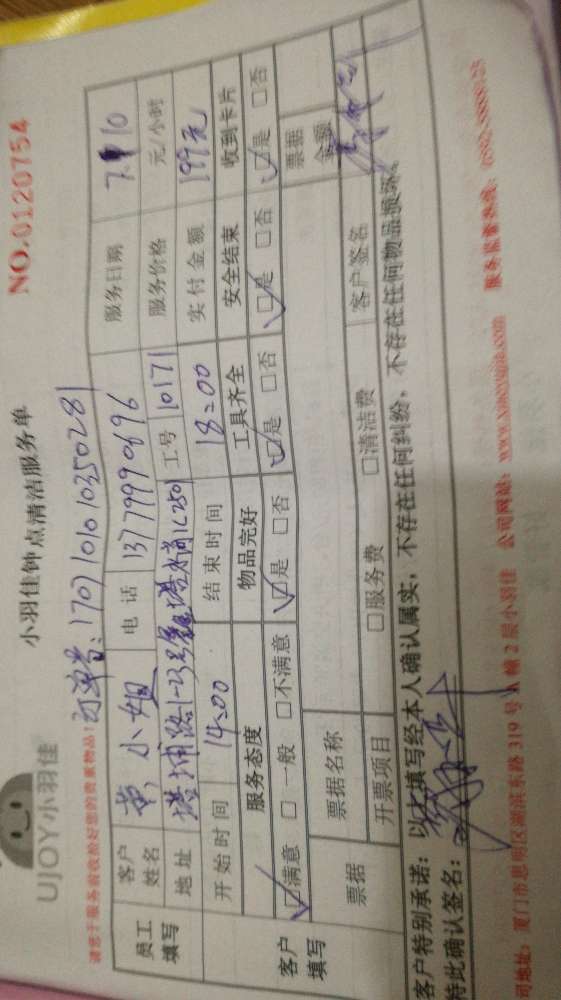 UJOY小羽佳
小羽佳钟点清洁服务单
NO.0120754
请您于服务前收拾好您的贵重物品!
订单号:17071010 10350281
员工填写
客户姓名 黄小姐 电话 13779990696 服务日期 7.10
地址 工号 10171 服务价格 元/小时
开始时间 14:00 结束时间 18:00 实付金额 199元
客户填写
服务态度 物品完好 工具齐全 安全结束 收到卡片
☑满意 □一般 □不满意 ☑是 □否 ☑是 □否 ☑是 □否 ☑是 □否
票据 票据名称 票据金额
开票项目 □服务费 □清洁费 客户签名
客户特别承诺:以上填写经本人确认属实,不存在任何纠纷,不存在任何物品损坏。
特此确认签名:
司地址:厦门市思明区湖滨东路319号A幢2层小羽佳 公司网站:www.xiaoyujia.com 服务监督热线: